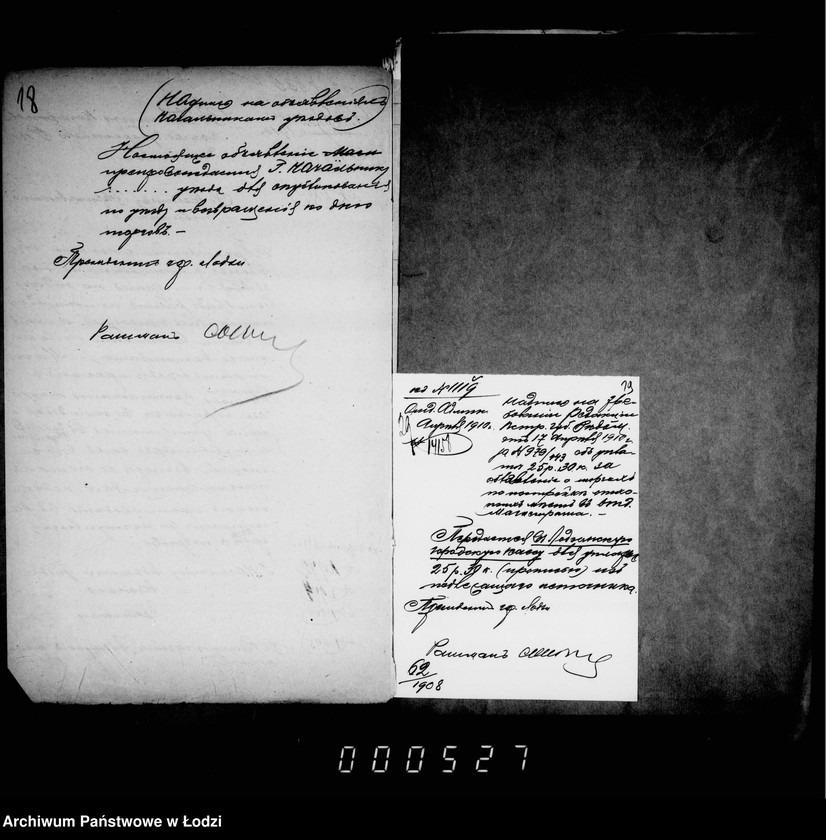 18
(Надпись на объявленіяхъ
Начальникамъ уѣздовъ.)
Настоящее объявленіе Маги
препровождается Г. Начальнику
....... уѣзда для опубликованія
по уѣзду и возвращенія ко дню
торговъ. —
Президентъ гор. Лодзи
Ратманъ
19
къ № 1119
Отд. Админ.
29 Апрѣля 1910 г.
№ 4158
Надпись на тре-
бованіи Редакціи
Петр. губ. Вѣдом.
отъ 17 Апрѣля 1910 г.
за № 979/443 объ упла-
тѣ 25 р. 30 к. за
объявленіе о торгахъ
по постройкѣ
въ
Магистрата. —
Передается въ Лодзинскую
городскую кассу для уплаты
25 р. 30 к. (прописью) изъ
подлежащаго источника.
Президентъ гор. Лодзи
Ратманъ
62
1908
000527
Archiwum Państwowe w Łodzi